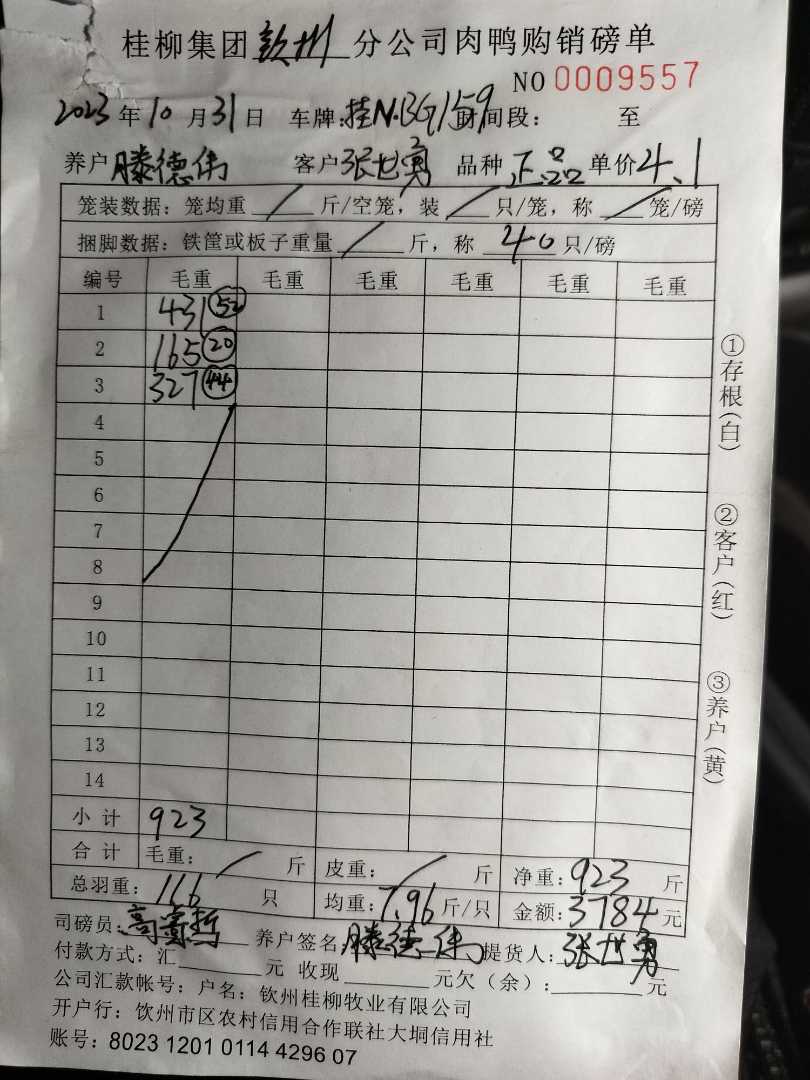 桂柳集团 钦州 分公司肉鸭购销磅单
NO 0009557
2023年10月31日 车牌:桂N·BG159 时间段: 至
养户 滕德伟 客户 张世勇 品种 正品 单价 4.1
笼装数据:笼均重 / 斤/空笼,装 / 只/笼,称 / 笼/磅
捆脚数据:铁筐或板子重量 / 斤,称 40 只/磅
编号 毛重 毛重 毛重 毛重 毛重 毛重
1 431 52
2 165 20
3 327 44
4
5
6
7
8
9
10
11
12
13
14
小计 923
合计 毛重: / 斤 皮重: / 斤 净重:923 斤
总羽重:116 只 均重:7.96 斤/只 金额:3784 元
司磅员: 养户签名 滕德伟 提货人:张世勇
付款方式:汇 元 收现 元欠(余): 元
公司汇款帐号:户名:钦州桂柳牧业有限公司
开户行:钦州市区农村信用合作联社大垌信用社
账号:8023 1201 0114 4296 07
①存根(白)
②客户(红)
③养户(黄)